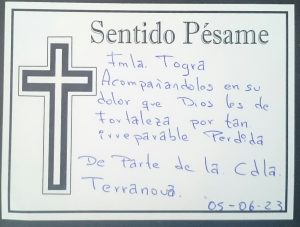 Sentido Pésame
Fmla. Togra
Acompañandolos en su
dolor que Dios les de
Fortaleza por tan
irreparable Perdida
De Parte de la Cdla.
Terranova.
05-06-23